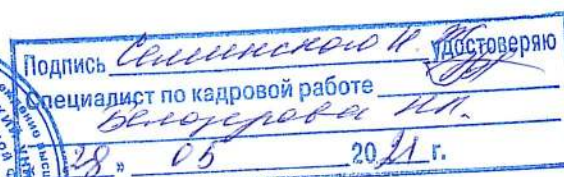 Подпись Семинского И. Ж. удостоверяю
Специалист по кадровой работе
Белозерова Н.П.
28 » 05 2021 г.